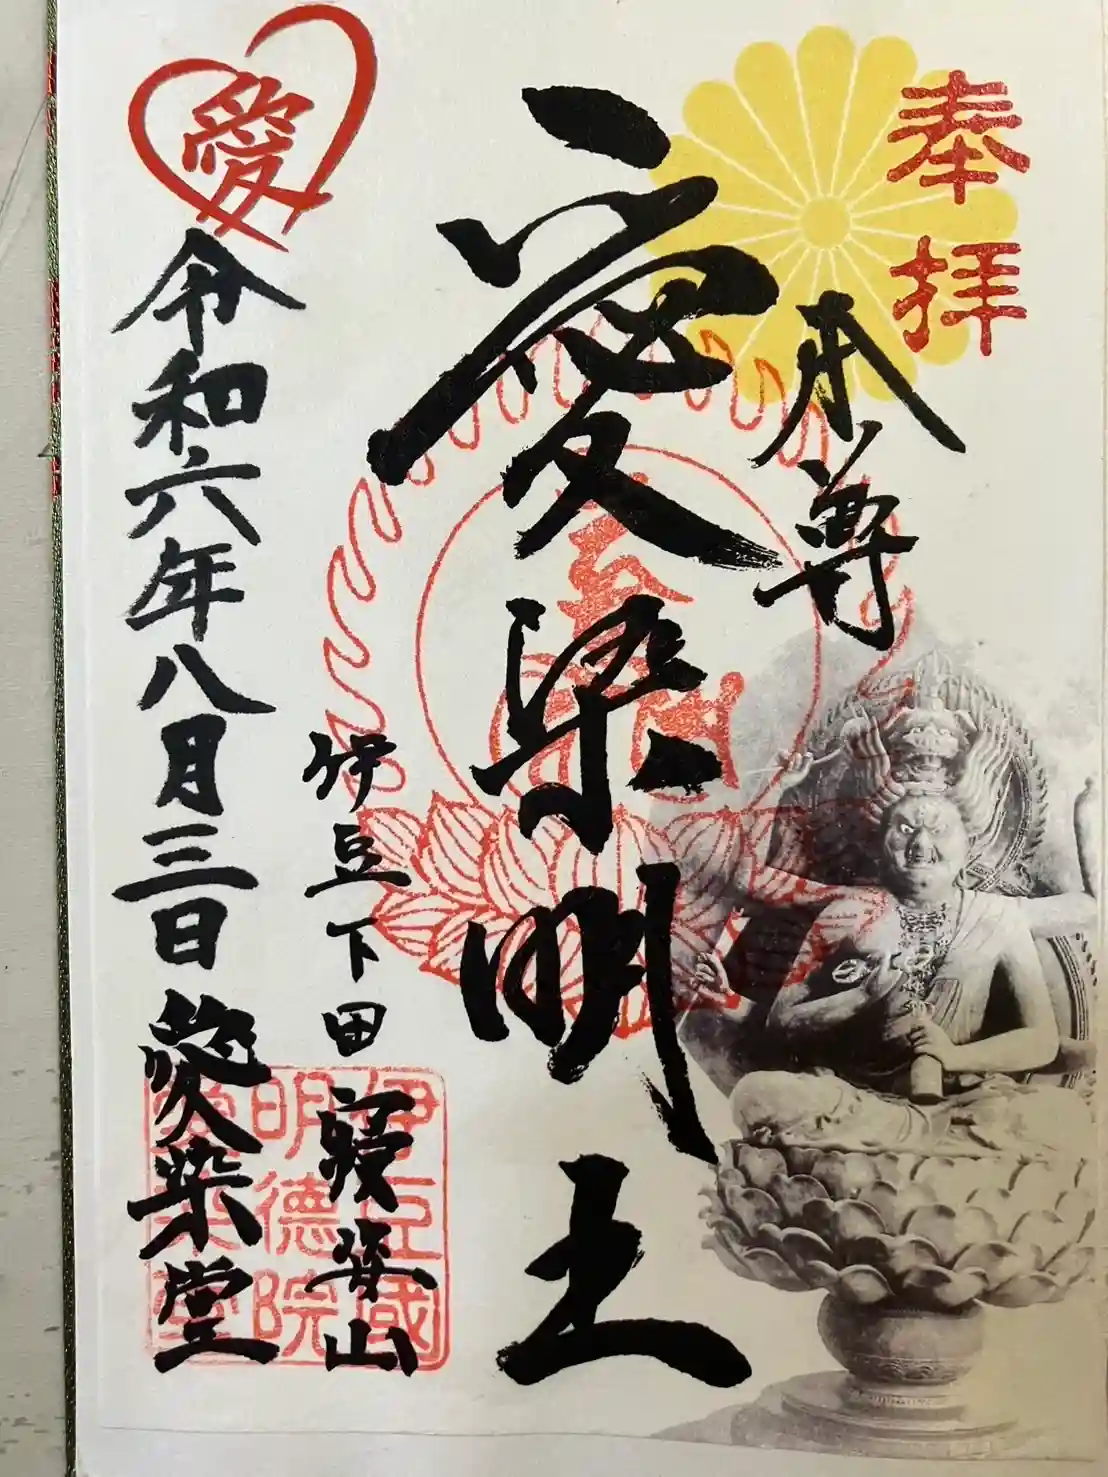 奉拝
本尊
愛染明王
伊豆下田 寝姿山
伊豆国
明徳院
愛染堂
愛
令和六年八月三日 愛染堂